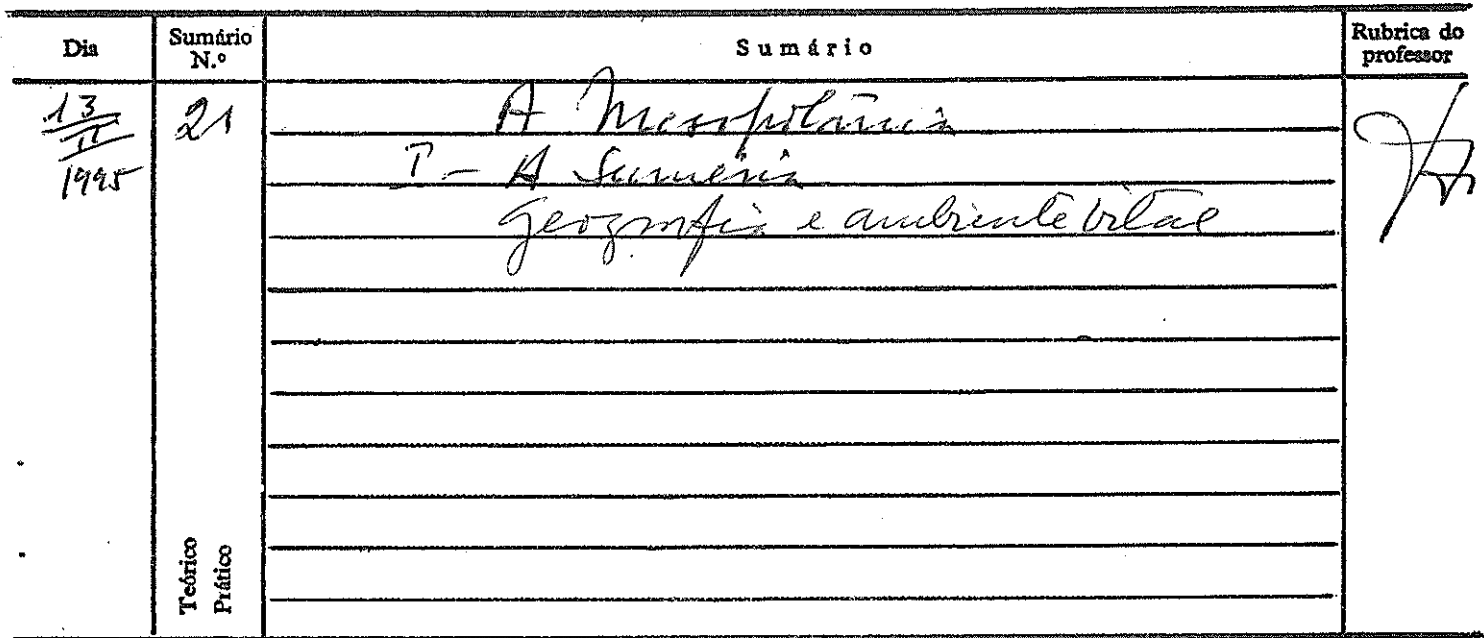 Dia Sumário N.º Sumário Rubrica do professor
13 21 A Mesopotâmia
II
1995 I - A Suméria
Geografia e ambiente vital
Teórico
Prático